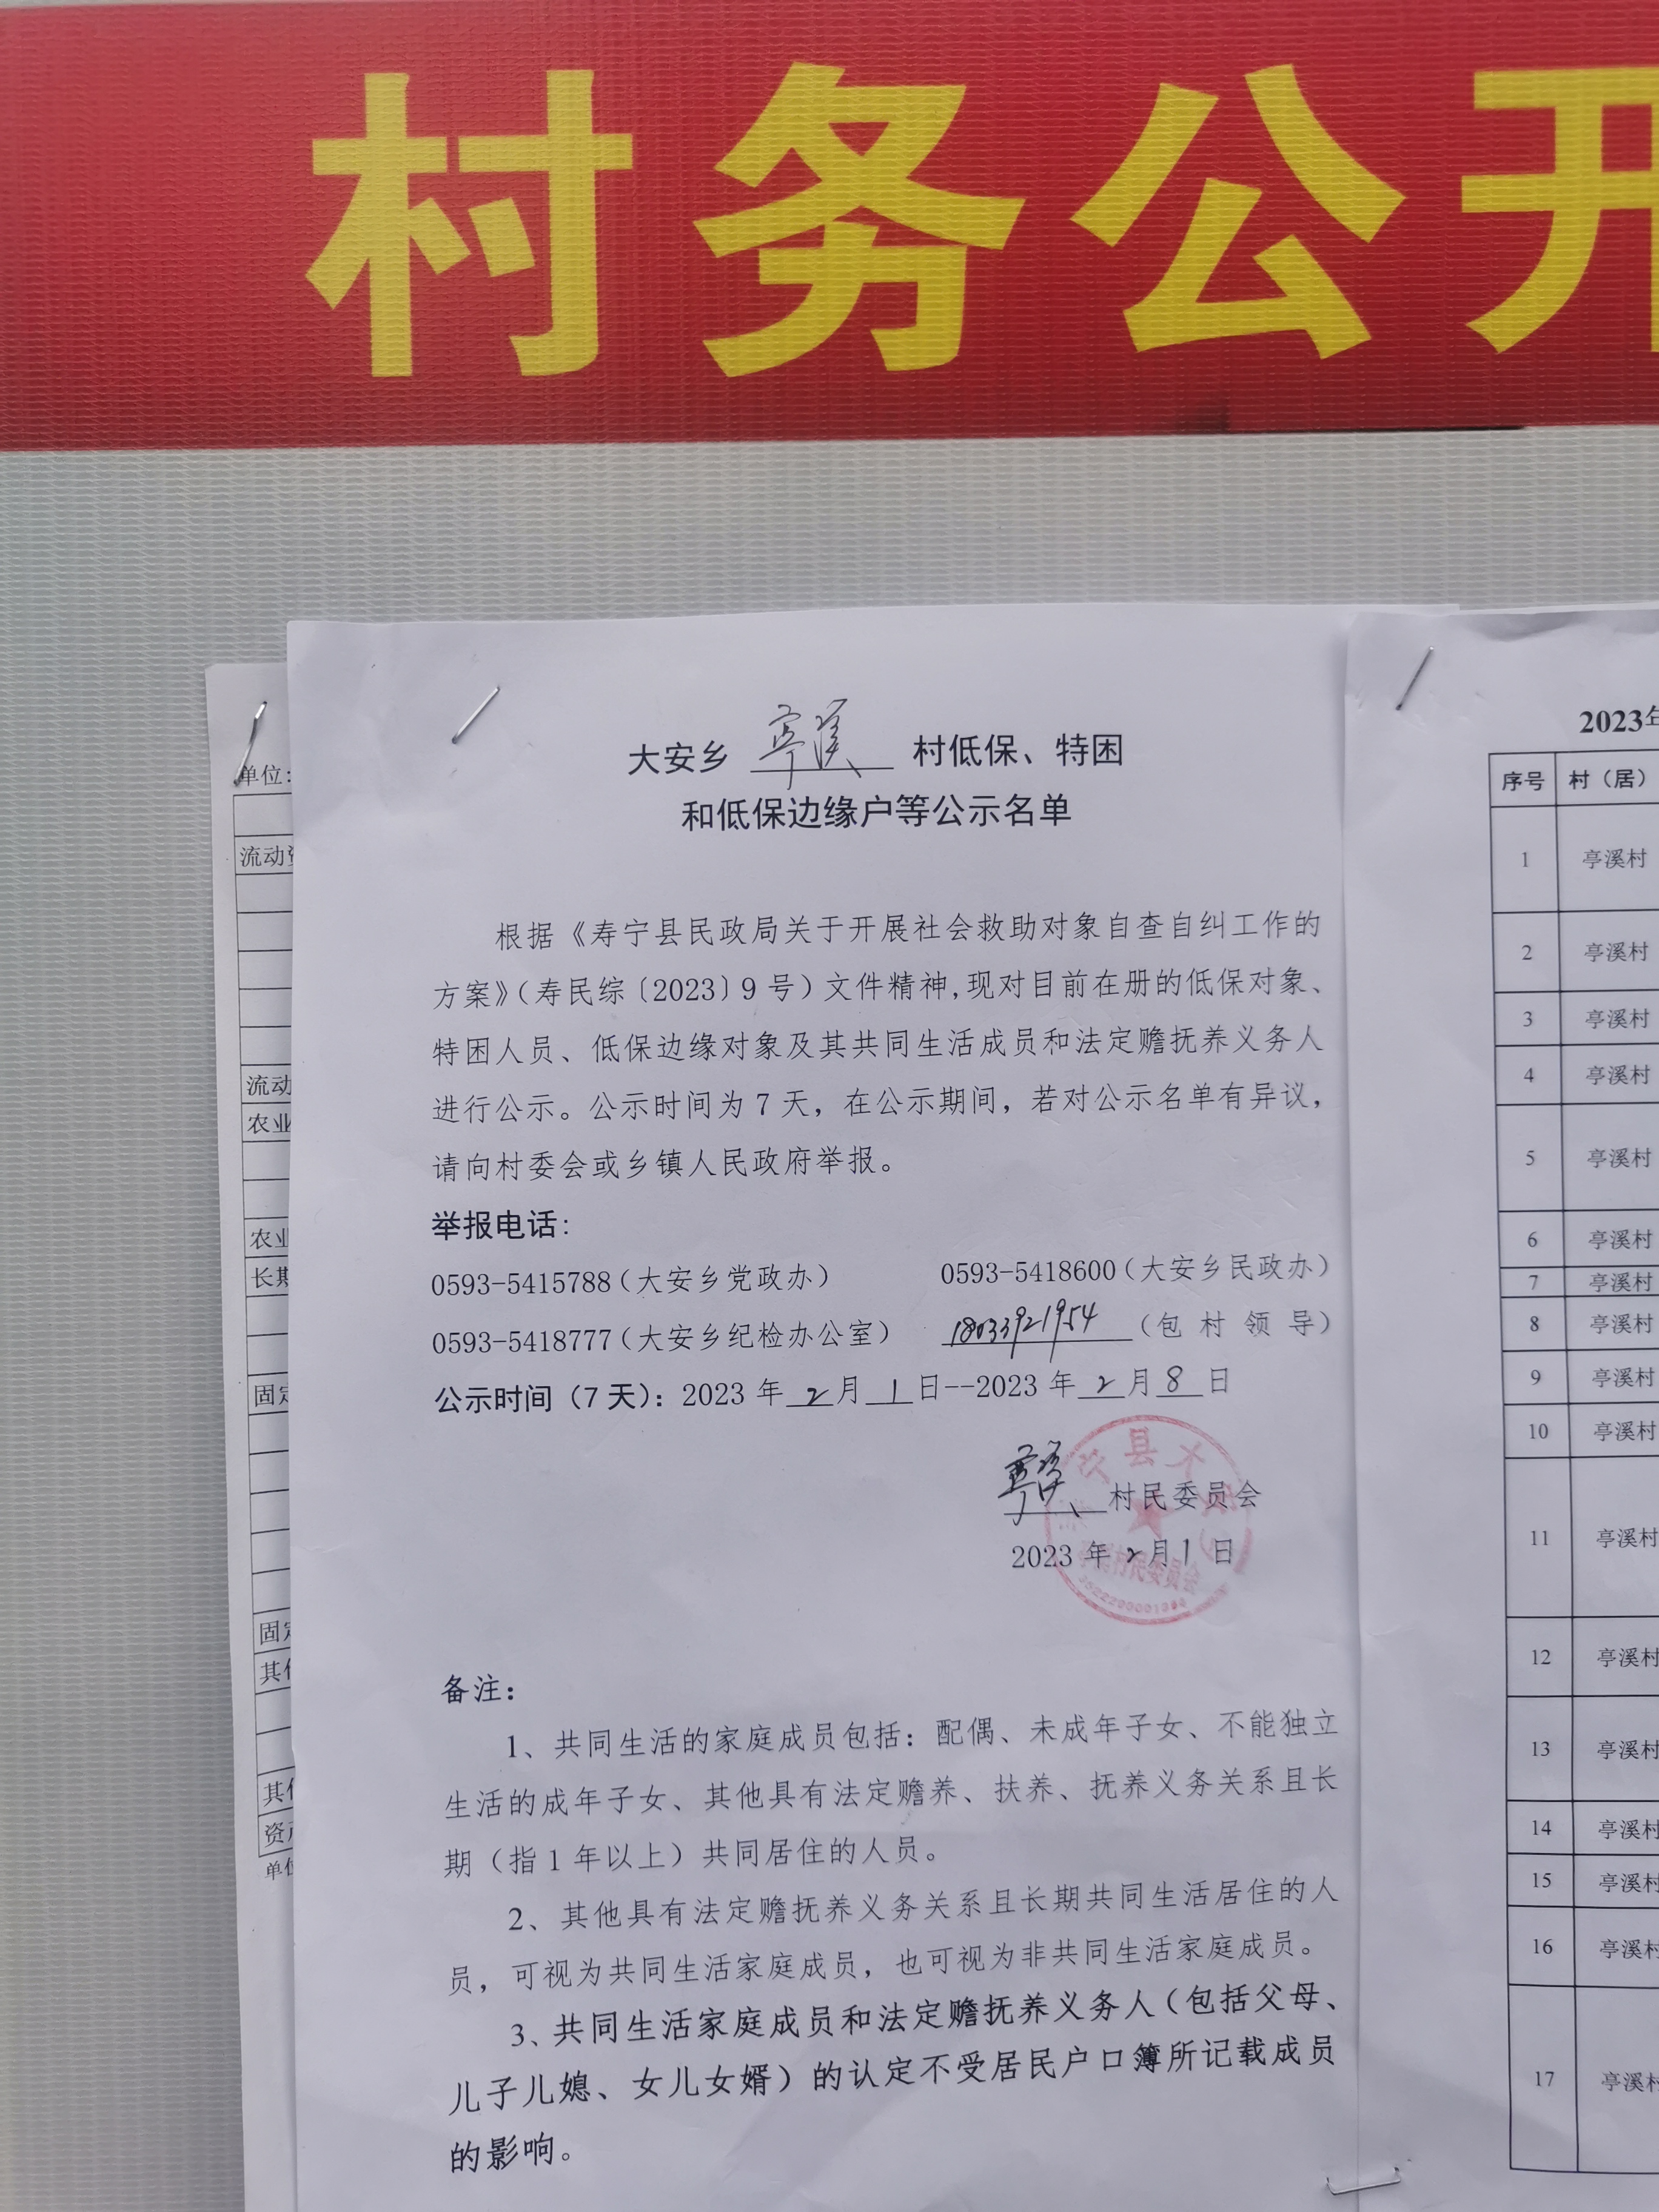 村务公开
大安乡 亭溪 村低保、特困
和低保边缘户等公示名单
根据《寿宁县民政局关于开展社会救助对象自查自纠工作的
方案》（寿民综〔2023〕9号）文件精神,现对目前在册的低保对象、
特困人员、低保边缘对象及其共同生活成员和法定赡抚养义务人
进行公示。公示时间为7天，在公示期间，若对公示名单有异议，
请向村委会或乡镇人民政府举报。
举报电话：
0593-5415788（大安乡党政办） 0593-5418600（大安乡民政办）
0593-5418777（大安乡纪检办公室） 18033921954（包村领导）
公示时间（7天）：2023年2月1日--2023年2月8日
亭溪村民委员会
2023年2月1日
村民委员会
备注：
1、共同生活的家庭成员包括：配偶、未成年子女、不能独立
生活的成年子女、其他具有法定赡养、扶养、抚养义务关系且长
期（指1年以上）共同居住的人员。
2、其他具有法定赡抚养义务关系且长期共同生活居住的人
员，可视为共同生活家庭成员，也可视为非共同生活家庭成员。
3、共同生活家庭成员和法定赡抚养义务人（包括父母、
儿子儿媳、女儿女婿）的认定不受居民户口簿所记载成员
的影响。
单位：
流动资
流动
农业
农业
长期
固定
固定
其他
其他
资产
单位
2023年
序号 村（居）
1 亭溪村
2 亭溪村
3 亭溪村
4 亭溪村
5 亭溪村
6 亭溪村
7 亭溪村
8 亭溪村
9 亭溪村
10 亭溪村
11 亭溪村
12 亭溪村
13 亭溪村
14 亭溪村
15 亭溪村
16 亭溪村
17 亭溪村